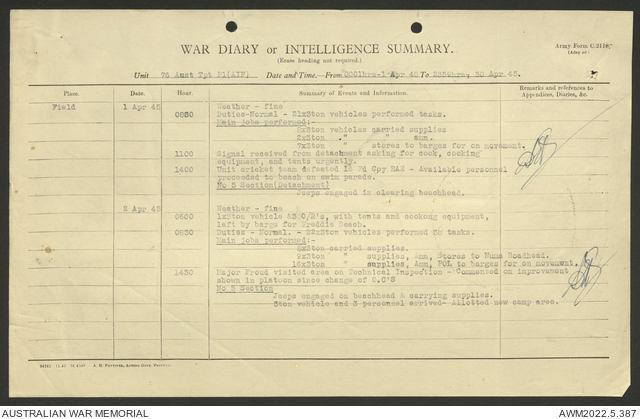 WAR DIARY or INTELLIGENCE SUMMARY.
Army Form C.2118
(Erase heading not required.)
Unit 76 Aust Tpt Pl(AIF) Date and Time.—From 0001hrs-1 Apr 45 To 2359hrs, 30 Apr 45.
Place. Date. Hour. Summary of Events and Information. Remarks and references to Appendices, Diaries, &c.
Field 1 Apr 45 Weather - fine
0830 Duties-Normal - 21x3ton vehicles performed tasks.
Main jobs performed:-
vehicles carried supplies
2x3ton " " amn.
7x3ton " stores to barges for on movement.
1100 Signal received from detachment asking for cook, cooking
equipment, and tents urgently.
1400 Unit cricket team defeated Fd Cpy RAE - Available personnel
proceeded to beach on swim parade.
No 5 Section(Detachment)
Jeeps engaged in clearing beachhead.
2 Apr 45 Weather - fine
0600 1x3ton vehicle with tents and cooking equipment,
left by barge for Freddie Beach.
0830 Duties - Normal. - 22x3ton vehicles performed tasks.
Main jobs performed:-
carried supplies.
9x3ton " supplies, Amn, Stores to Roadhead.
" supplies, Amn, POL to barges for on movement.
1430 Major Proud visited area on Technical Inspection - Commented on improvement
shown in platoon since change of O.C'S
No 5 Section
Jeeps engaged on beachhead & carrying supplies.
3ton vehicle and 3 personnel arrived- Allotted new camp area.
AUSTRALIAN WAR MEMORIAL
AWM2022.5.387